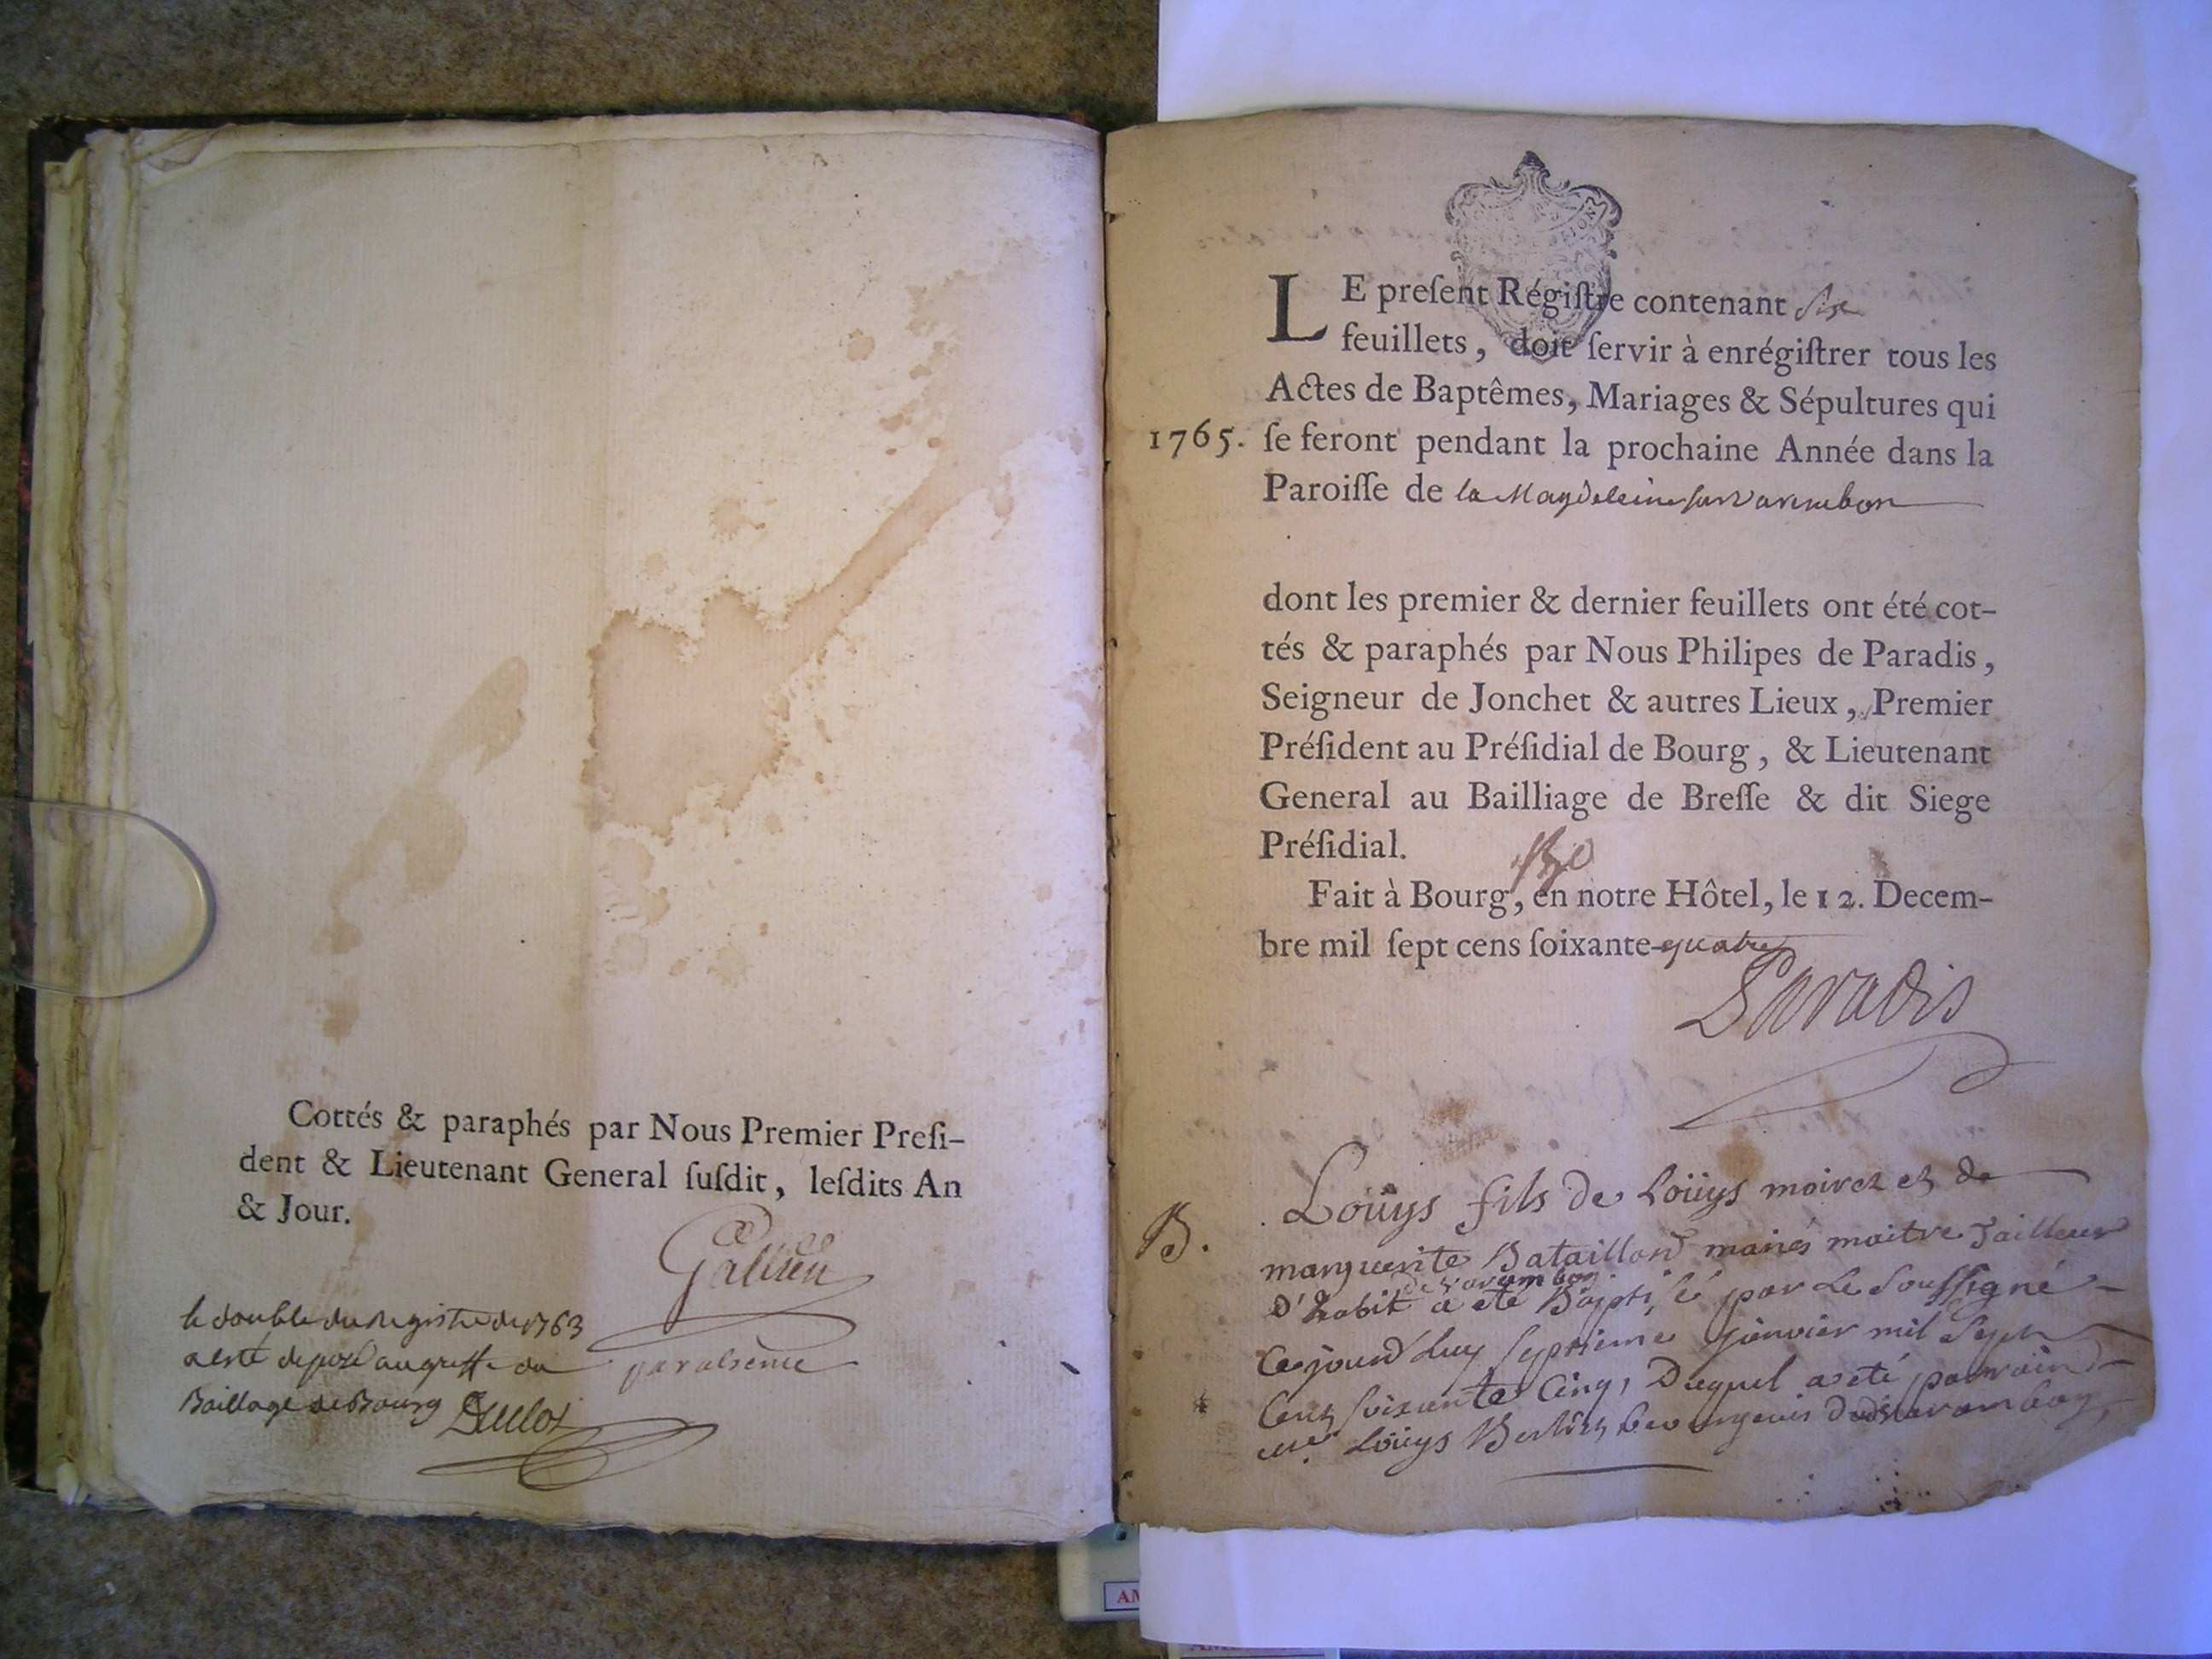 Cottés & paraphés par Nous Premier Presi-
dent & Lieutenant General susdit, lesdits An
& Jour.
Gallien
par absence
le double du Registre de 1763
a esté deposé au greffe du
Baillage de Bourg
LE present Régistre contenant six
feuillets, doit servir à enrégistrer tous les
Actes de Baptêmes, Mariages & Sépultures qui
1765. se feront pendant la prochaine Année dans la
Paroisse de la Magdeleine sur varembon
dont les premier & dernier feuillets ont été cot-
tés & paraphés par Nous Philipes de Paradis,
Seigneur de Jonchet & autres Lieux, Premier
Président au Présidial de Bourg, & Lieutenant
General au Bailliage de Bresse & dit Siege
Présidial.
Fait à Bourg, en notre Hôtel, le 12. Decem-
bre mil sept cens soixante-quatre
Paradis
Loüys fils de Loüys moirez et de
B. marguerite Bataillard mariés maitre Tailleur
de varambon
D'habit a été Baptisé par Le Soussigné
Ce jourd'huy septieme janvier mil Sept
Cent soixante Cinq, Duquel a été parrain
Mr. Loüys bourgeois dudit varambon,
AM